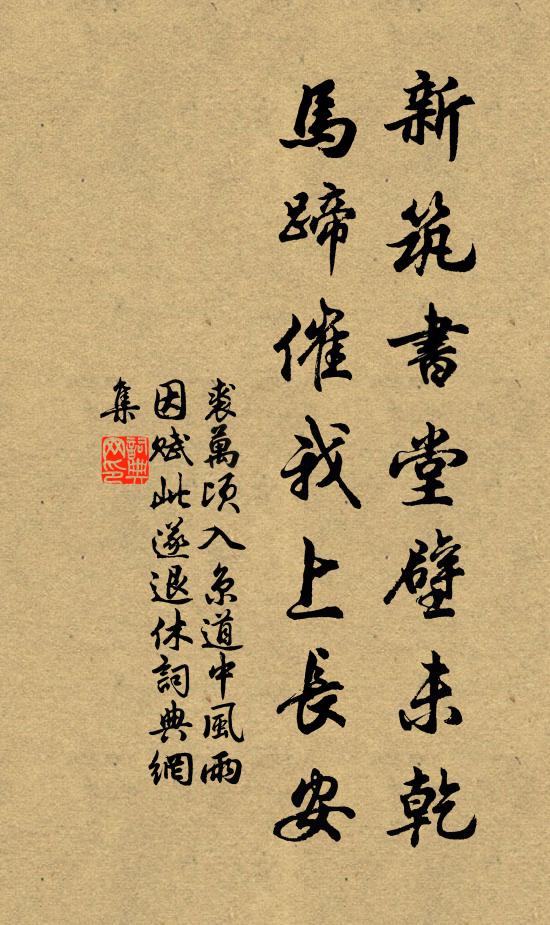 新筑書堂壁未乾
馬蹄催我上長安
裘萬頃入京道中風雨
因賦此遂退休詞典網
集
詞典網印